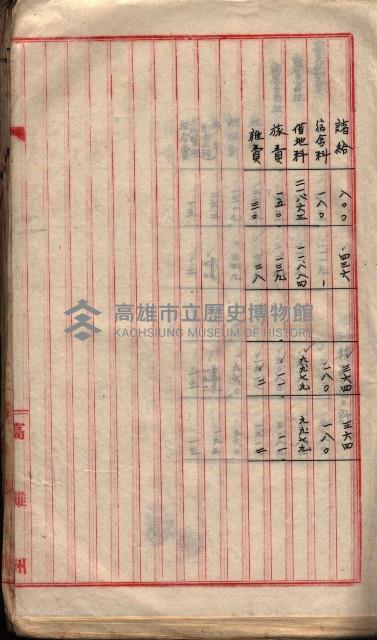 諸給 八〇〇 四三六 三六四 三六四
宿舍料 一八〇 一八〇 一八〇
借地料 二一八六三 一一八八四 九九七九 九九七九
旅費 一五〇 一三九 一一 一一
雜費 三〇 二八 二 二
高雄州
高雄市立歷史博物館
KAOHSIUNG MUSEUM OF HISTORY